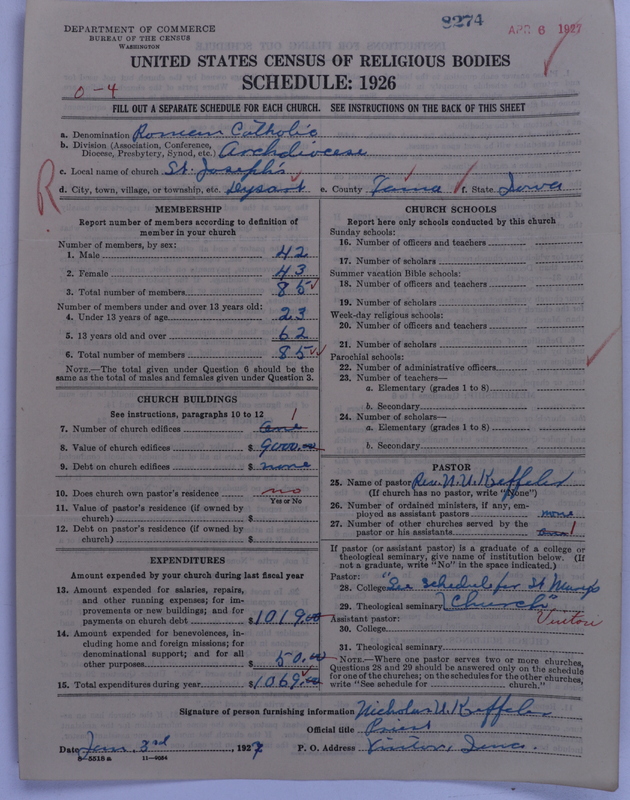 DEPARTMENT OF COMMERCE
BUREAU OF THE CENSUS
WASHINGTON
8274
APR 6 1927
UNITED STATES CENSUS OF RELIGIOUS BODIES
SCHEDULE: 1926
0-4
FILL OUT A SEPARATE SCHEDULE FOR EACH CHURCH. SEE INSTRUCTIONS ON THE BACK OF THIS SHEET
a. Denomination Roman Catholic
b. Division (Association, Conference, Diocese, Presbytery, Synod, etc.) Archdiocese
c. Local name of church St. Joseph's
R
d. City, town, village, or township, etc. Dysart e. County Tama f. State Iowa
MEMBERSHIP
Report number of members according to definition of member in your church
Number of members, by sex:
1. Male 42
2. Female 43
3. Total number of members 85
Number of members under and over 13 years old:
4. Under 13 years of age 23
5. 13 years old and over 62
6. Total number of members 85
NOTE.—The total given under Question 6 should be same as the total of males and females given under Question 3.
CHURCH BUILDINGS
See instructions, paragraphs 10 to 12
7. Number of church edifices One 1
8. Value of church edifices $ 9000.00
9. Debt on church edifices $ none
10. Does church own pastor's residence no
Yes or No
11. Value of pastor's residence (if owned by church) $
12. Debt on pastor's residence (if owned by church) $
EXPENDITURES
Amount expended by your church during last fiscal year
13. Amount expended for salaries, repairs, and other running expenses; for improvements or new buildings; and for payments on church debt $ 1019.00
14. Amount expended for benevolences, including home and foreign missions; for denominational support; and for all other purposes $ 50.00
15. Total expenditures during year $ 1069.00
CHURCH SCHOOLS
Report here only schools conducted by this church
Sunday schools:
16. Number of officers and teachers
17. Number of scholars
Summer vacation Bible schools:
18. Number of officers and teachers
19. Number of scholars
Week-day religious schools:
20. Number of officers and teachers
21. Number of scholars
Parochial schools:
22. Number of administrative officers
23. Number of teachers—
a. Elementary (grades 1 to 8)
b. Secondary
24. Number of scholars—
a. Elementary (grades 1 to 8)
b. Secondary
PASTOR
25. Name of pastor Rev. N. U. Keffeler
(If church has no pastor, write "None")
26. Number of ordained ministers, if any, employed as assistant pastors none
27. Number of other churches served by the pastor or his assistants 1
If pastor (or assistant pastor) is a graduate of a college or theological seminary, give name of institution below. (If not a graduate, write "No" in the space indicated.)
Pastor:
28. College "See schedule for St Mary's
29. Theological seminary Church"
Vinton
Assistant pastor:
30. College
31. Theological seminary
NOTE.—Where one pastor serves two or more churches, Questions 28 and 29 should be answered only on the schedule for one of the churches; on the schedules for the other churches, write "See schedule for church."
Signature of person furnishing information Nicholas U. Keffeler
Official title Priest
Date Jan. 3rd, 1927
P. O. Address Vinton, Iowa.
8-5518a 11-9054